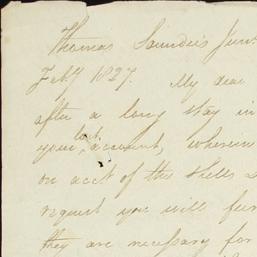 Thomas Saunders Junr
Feby 1827. My dear
after a long stay in
last
your account, wherein
on acct of the Shells
request you will fur
they are necessary for